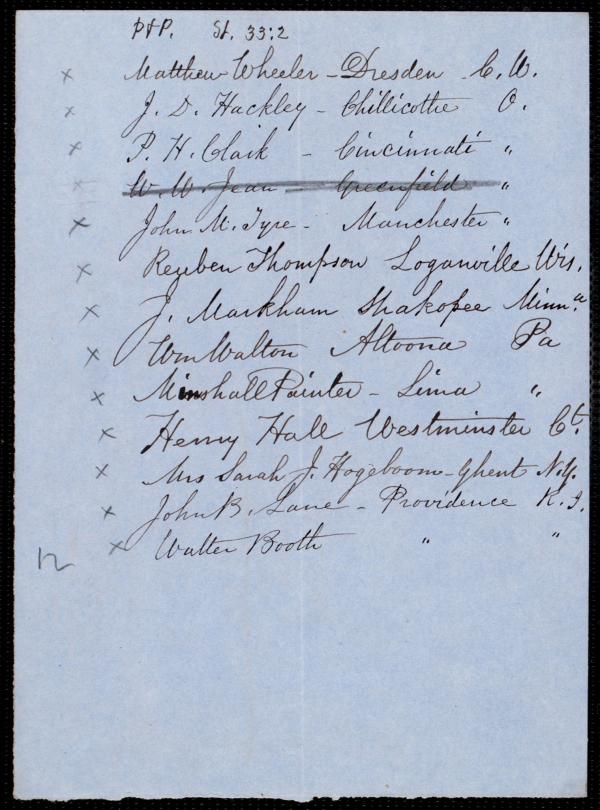 P&P. St. 33:2
x Matthew Wheeler - Dresden C. W.
x J. D. Hackley - Chillicothe O.
x P. H. Clark - Cincinnati "
x W. W. Jean - Greenfield "
x John M. Tyre - Manchester "
x Reuben Thompson Loganville Wis.
x J. Markham Shakopee Minna.
x Wm Walton Altoona Pa
x Minshall Painter - Lima "
x Henry Hall Westminster Ct.
x Mrs Sarah J. Hogeboom - Ghent N.Y.
x John B. Lane - Providence R. I.
x Walter Booth " "
12